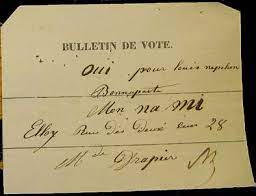 BULLETIN DE VOTE.
Oui pour louis napoleon
Bonnaparte
Mon na mi
Rue des Deux 28
Md Drapier